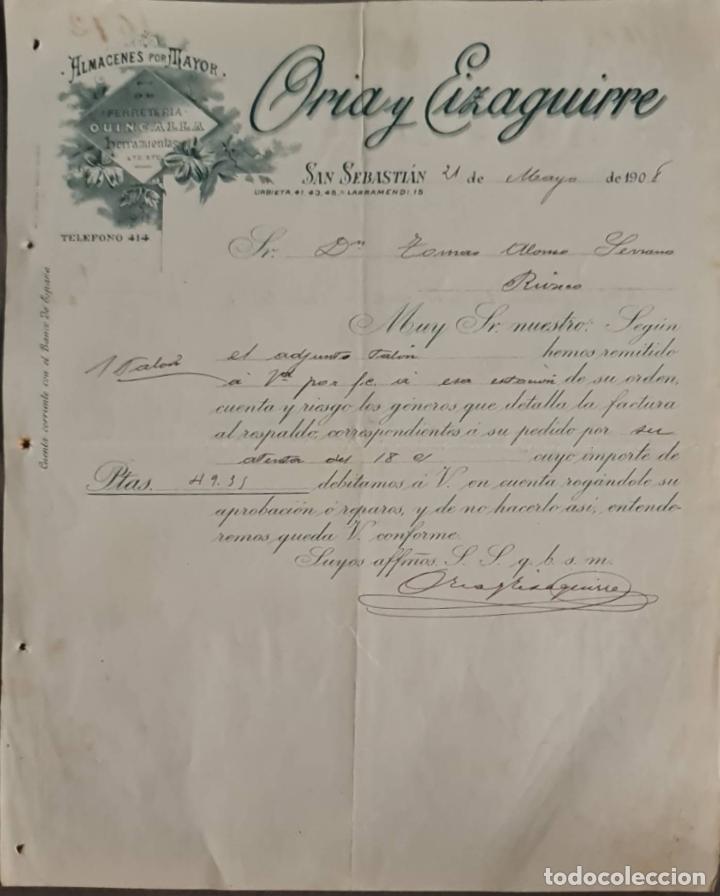 ALMACENES POR MAYOR
DE
FERRETERIA
QUINCALLA
herramientas
ETC. ETC.
Oria y Eizaguirre
SAN SEBASTIÁN 21 de Mayo de 190
URBIETA, 41, 43, 45, Y LARRAMENDI, 15
TELEFONO 414
Cuenta corriente con el Banco de España
Sr. Dn Tomas Alonso Serrano
Rioseco
Muy Sr. nuestro: Según
1 Talon el adjunto talón hemos remitido
á Vd por f.c. á esa estación de su orden,
cuenta y riesgo los géneros que detalla la factura
al respaldo, correspondientes á su pedido por su
atenta del 18 cuyo importe de
Ptas. 49.35 debitamos á V. en cuenta rogándole su
aprobación ó reparos, y de no hacerlo así, entende-
remos queda V. conforme.
Suyos affmos. S. S. q. b. s. m.
Oria y Eizaguirre
todocoleccion